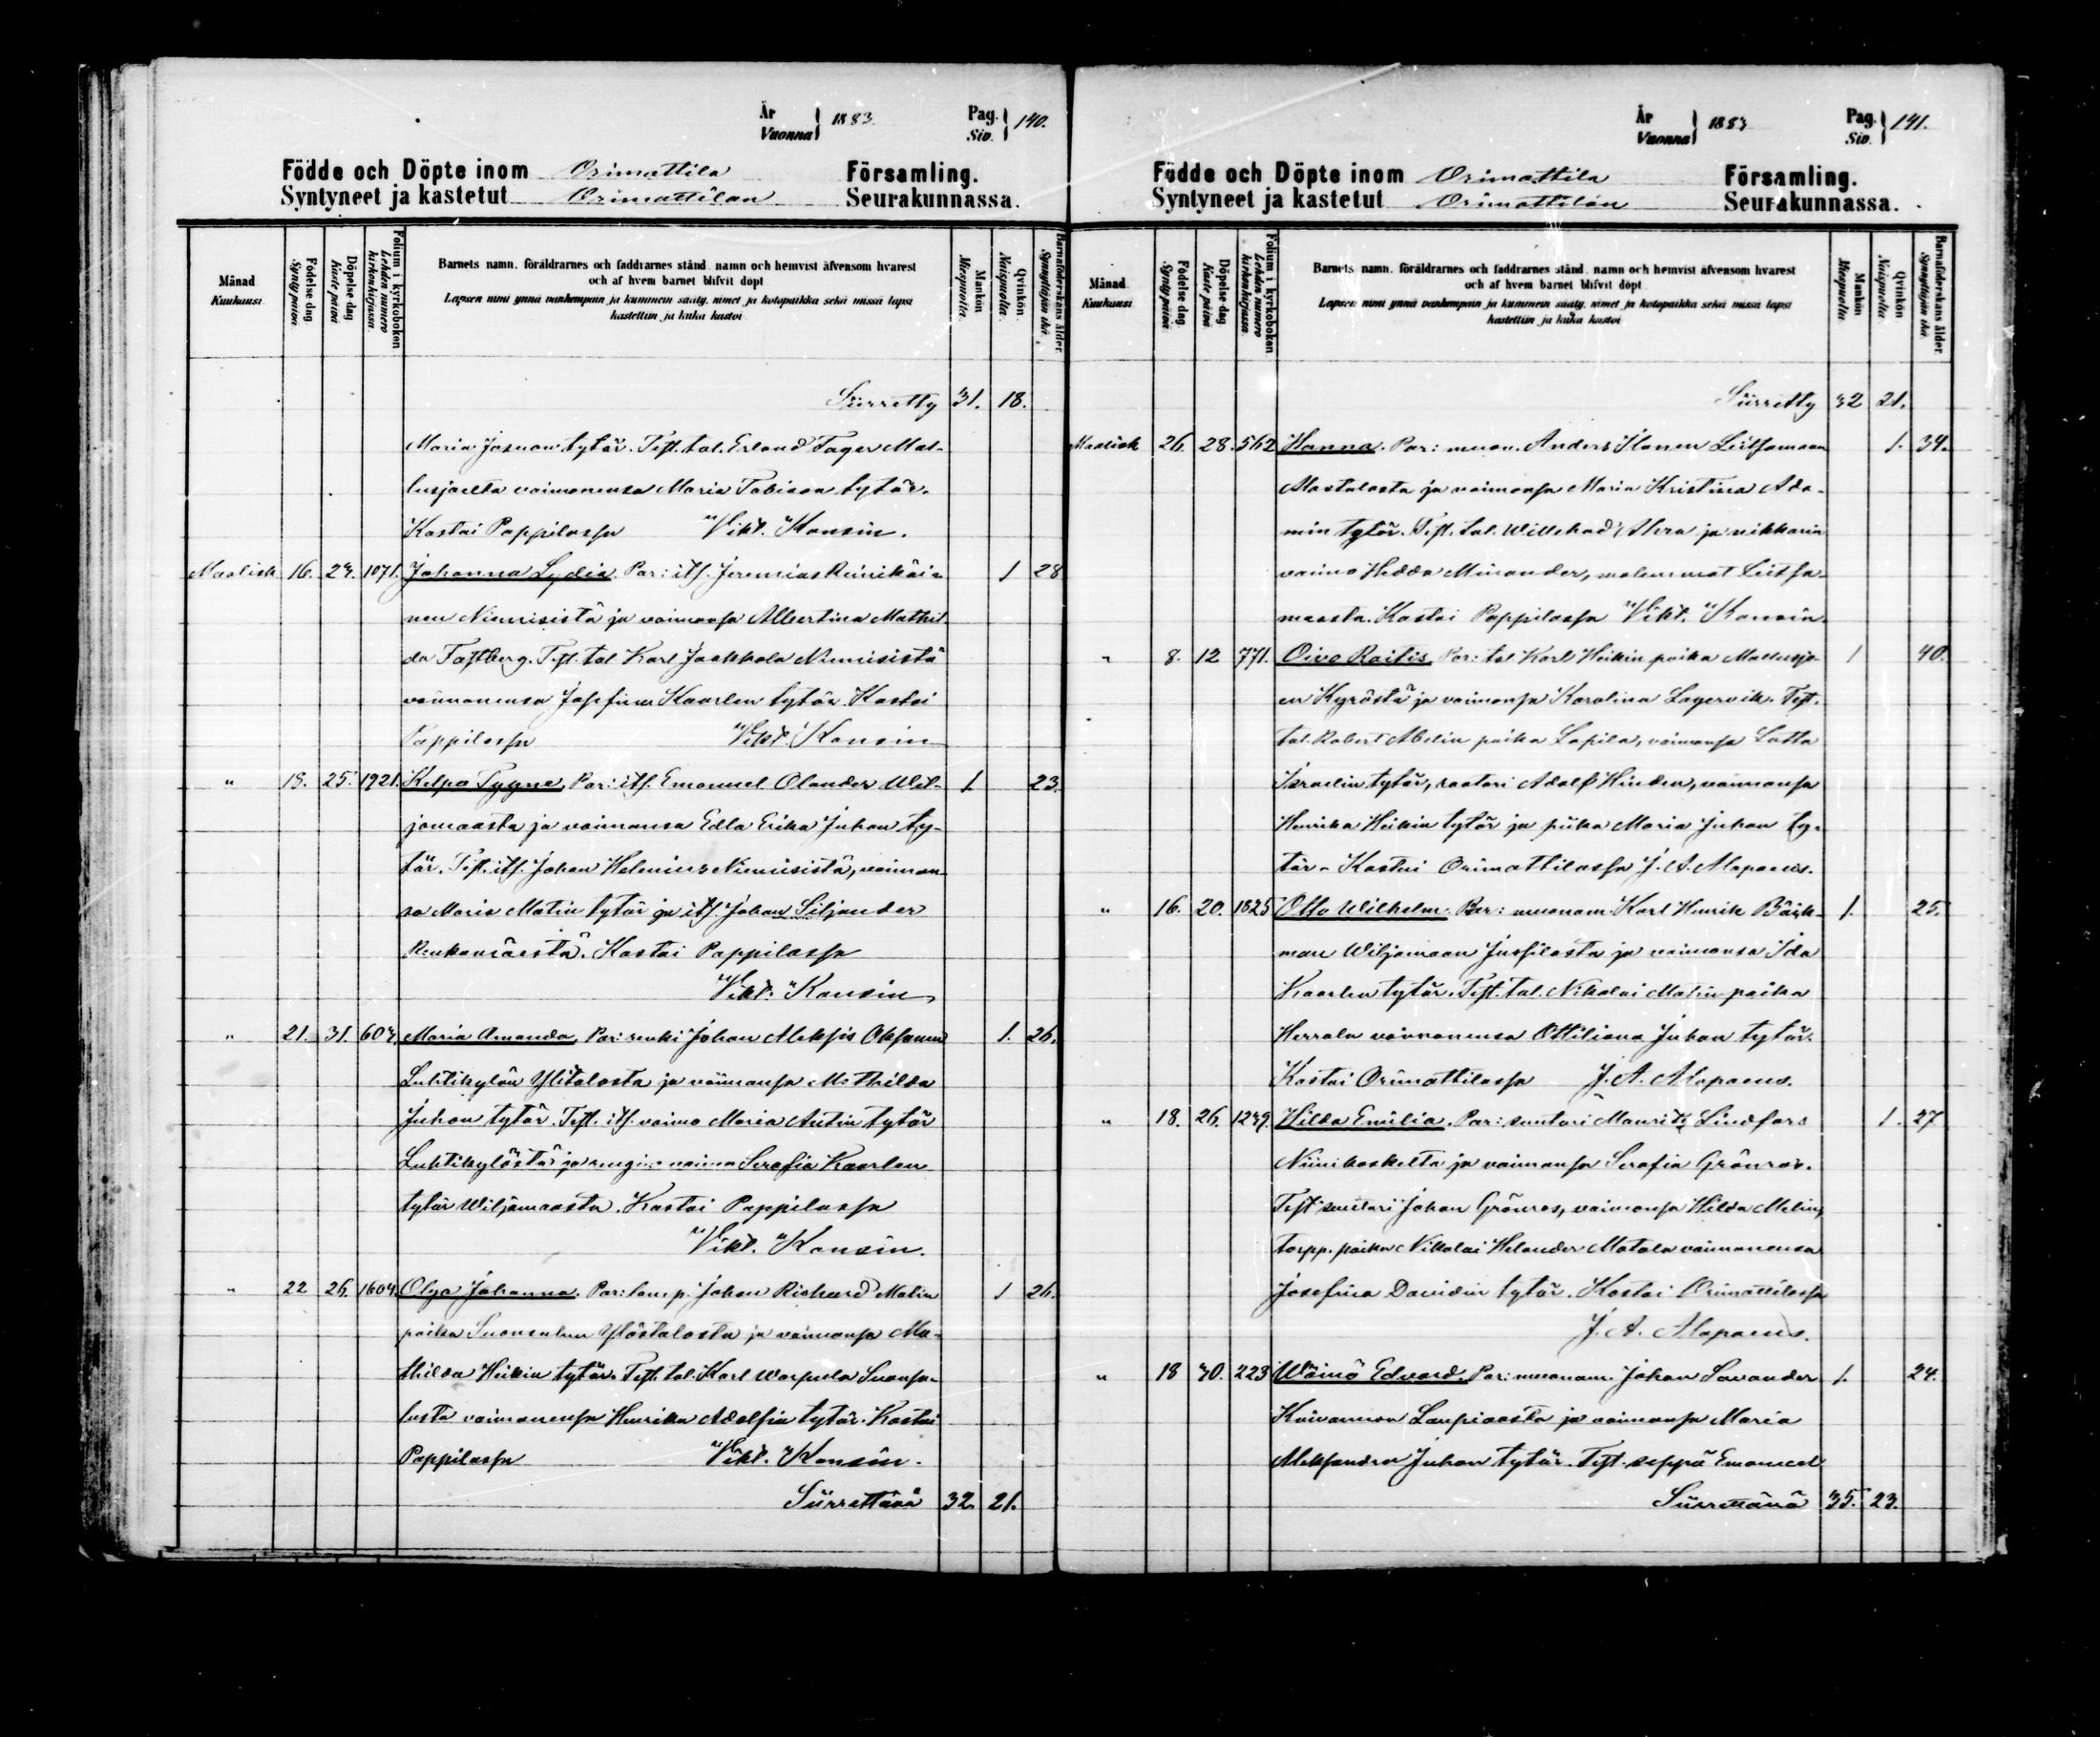 År
Vuonna } 1883.
Pag.
Siv. } 140.
Födde och Döpte inom Orimattila Församling.
Syntyneet ja kastetut Orimattilan Seurakunnassa.
Månad
Kuukausi
Födelse dag
Syntypäivä
Döpelse dag
Kastepäivä
Folium i kyrkoboken
Lehden numero kirkonkirjassa
Barnets namn, föräldrarnes och faddrarnes stånd, namn och hemvist äfvensom hvarest
och af hvem barnet blifvit döpt
Lapsen nimi ynnä vanhempain ja kummein sääty, nimet ja kotopaikka sekä missä lapsi
kastettiin ja kuka kastoi
Mankön
Miespuolia.
Qvinkön
Naispuolia.
Barnaföderskans ålder.
Synnyttäjän ikä.
Siirretty 31. 18.
Maria Josuan tytär. Test. tal. Erland Fager Mal-
lusjoelta vaimonensa Maria Tobiaan tytär.
Kastoi Pappilassa "Vikt." Konsin.
Maalisk. 16. 24. 1071. Johanna Lydia. Par: its. Jeremias Reinikäi- 1 28
nen Niemisistä ja vaimonsa Albertina Mathil-
da Tastberg. Test. tal. Karl Jaakkola Niemisistä
vaimonensa Josefina Kaarlen tytär. Kastoi
Pappilassa "Vikt." Konsin
" 19. 25. 1921. Kelpo Tyyne. Par: its. Emanuel Olander Wil- 1. 23.
jamaasta ja vaimonsa Edla Erika Juhan ty-
tär. Test. its. Johan Helenius Niemisistä, vaimon-
sa Maria Matin tytär ja its. Johan Siljander
Renkomäestä. Kastoi Pappilassa
"Vikt." Konsin
" 21. 31. 604. Maria Amanda. Par: renki Johan Aleksis Oksanen 1. 26.
Luhtikylän Ylitalosta ja vaimonsa Mathilda
Juhan tytär. Test. its. vaimo Maria Antin tytär
Luhtikylästä ja rengin vaimo Serafia Kaarlen
tytär Wiljamaasta. Kastoi Pappilassa
"Vikt." Konsin.
" 22 26. 1604. Olga Johanna. Par: lamp. Johan Richard Matin 1 26.
poika Suonsalun Ylöstalosta ja vaimonsa Ma-
thilda Heikin tytär. Test. tal. Karl Warpula Suonsa-
lusta vaimonensa Henrika Adolfin tytär. Kastoi
Pappilassa "Vikt." Konsin.
Siirrettävä 32. 21.
År
Vuonna } 1883
Pag.
Siv. } 141.
Födde och Döpte inom Orimattila Församling.
Syntyneet ja kastetut Orimattilan Seurakunnassa.
Månad
Kuukausi
Födelse dag
Syntypäivä
Döpelse dag
Kastepäivä
Folium i kyrkoboken
Lehden numero kirkonkirjassa
Barnets namn, föräldrarnes och faddrarnes stånd, namn och hemvist äfvensom hvarest
och af hvem barnet blifvit döpt
Lapsen nimi ynnä vanhempain ja kummein sääty, nimet ja kotopaikka sekä missä lapsi
kastettiin ja kuka kastoi
Mankön
Miespuolia.
Qvinkön
Naispuolia.
Barnaföderskans ålder.
Synnyttäjän ikä.
Siirretty 32 21.
Maalisk 26. 28. 562 Hanna. Par: muon. Anders Ilanen Leitsamaan 1. 34.
Alastalosta ja vaimonsa Maria Kristina Ada-
min tytär. Test. tal. Willehad Ahra ja nikkarin
vaimo Hedda Minander, molemmat Leitsa-
maasta. Kastoi Pappilassa "Vikt." Konsin.
" 8. 12 771. Oivo Raitis. Par: tal. Karl Heikin poika Mallusjo- 1 40.
en Kyröstä ja vaimonsa Karolina Lagervik. Test.
tal. Robert Abelin poika Lapila, vaimonsa Lotta
Israelin tytär, raatari Adolf Hinden, vaimonsa
Henrika Heikin tytär ja piika Maria Juhan ty-
tär. Kastoi Orimattilassa J. A. Alopaeus.
" 16. 20. 1625 Otto Wilhelm. Par: muonam. Karl Henrik Bäck- 1. 25.
man Wiljamaan Jussilasta ja vaimonsa Ida
Kaarlen tytär. Test. tal. Nikolai Matin poika
Herrala vaimonensa Ottiliana Juhan tytär.
Kastoi Orimattilassa J. A. Alopaeus.
" 18. 26. 1249. Hilda Emilia. Par: suutari Mauritz Lindfors 1. 27
Niinikoskelta ja vaimonsa Serafia Grönros.
Test suutari Johan Grönros, vaimonsa Hilda Melin,
torpp. poika Nikolai Helander Matala vaimonensa
Josefina Davidin tytär. Kastoi Orimattilassa
J. A. Alopaeus.
" 18 30. 223 Wäinö Edvard. Par: muonam. Johan Savander 1. 24.
Koivannon Laupiaasta ja vaimonsa Maria
Aleksandra Juhan tytär. Test. seppä Emanuel
Siirrettävä 35. 23.